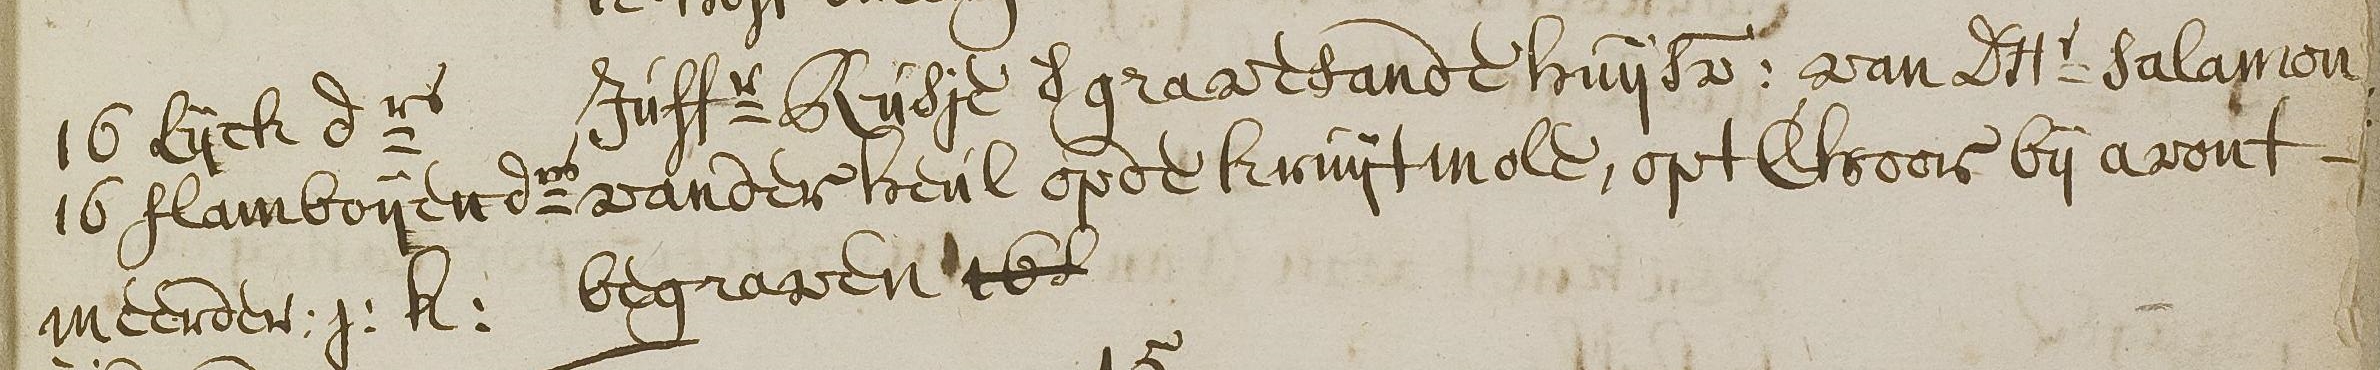 16 lijck drs Juffr Ruisje sgravesande huijsv: van DHr Salamon
16 flamboijen drs vander heul opde kruijtmole, opt Choor bij avont
meerder: j: k: begraven
15